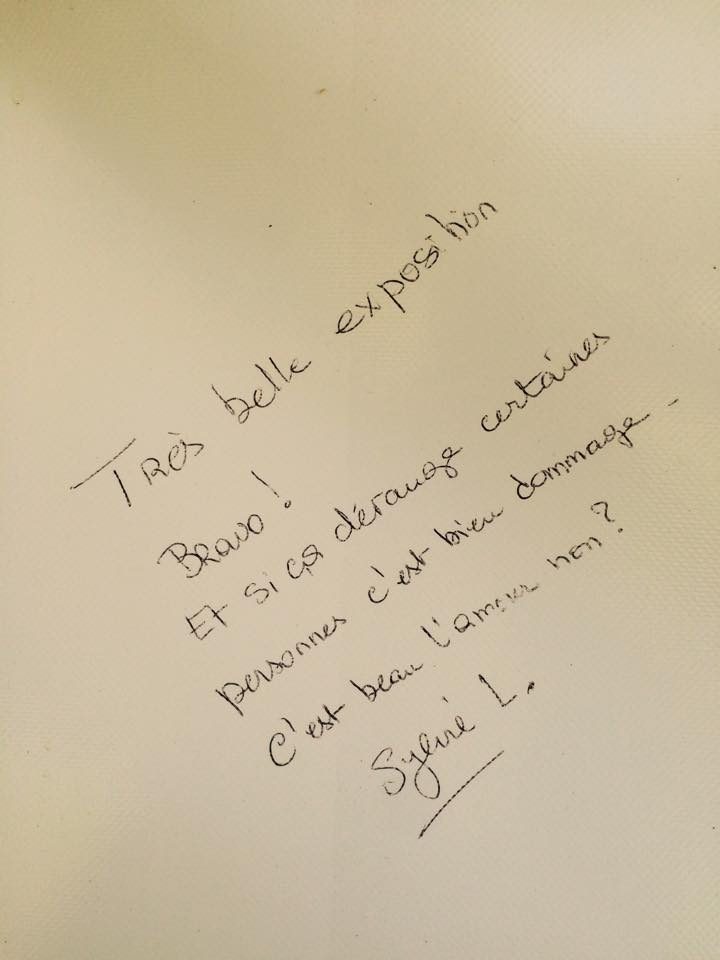 Très belle exposition
Bravo !
Et si ça dérange certaines
personnes c'est bien dommage -
C'est beau l'amour non ?
Sylvie L.